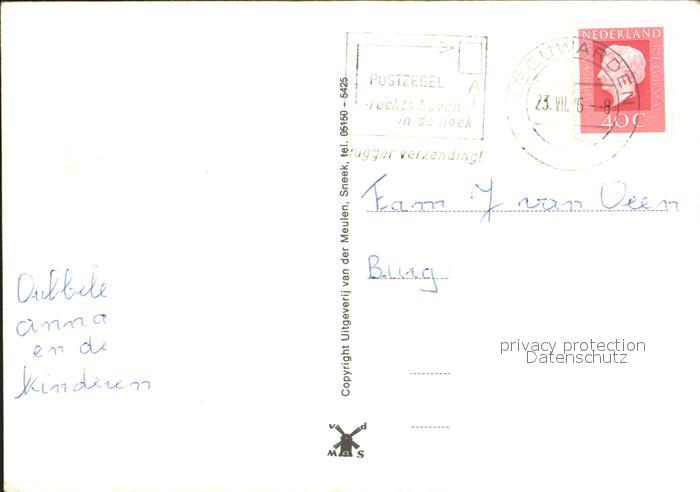 POSTZEGEL
-rechts boven-
in de hoek
vlugger verzending!
LEEUWARDEN
23. VII. 76 - 8
NEDERLAND
40 C
Fam J van Veen
Burg
privacy protection
Datenschutz
anna
en de
kinderen
Copyright Uitgeverij van der Meulen, Sneek, tel. 05150 - 5425
v d
M S